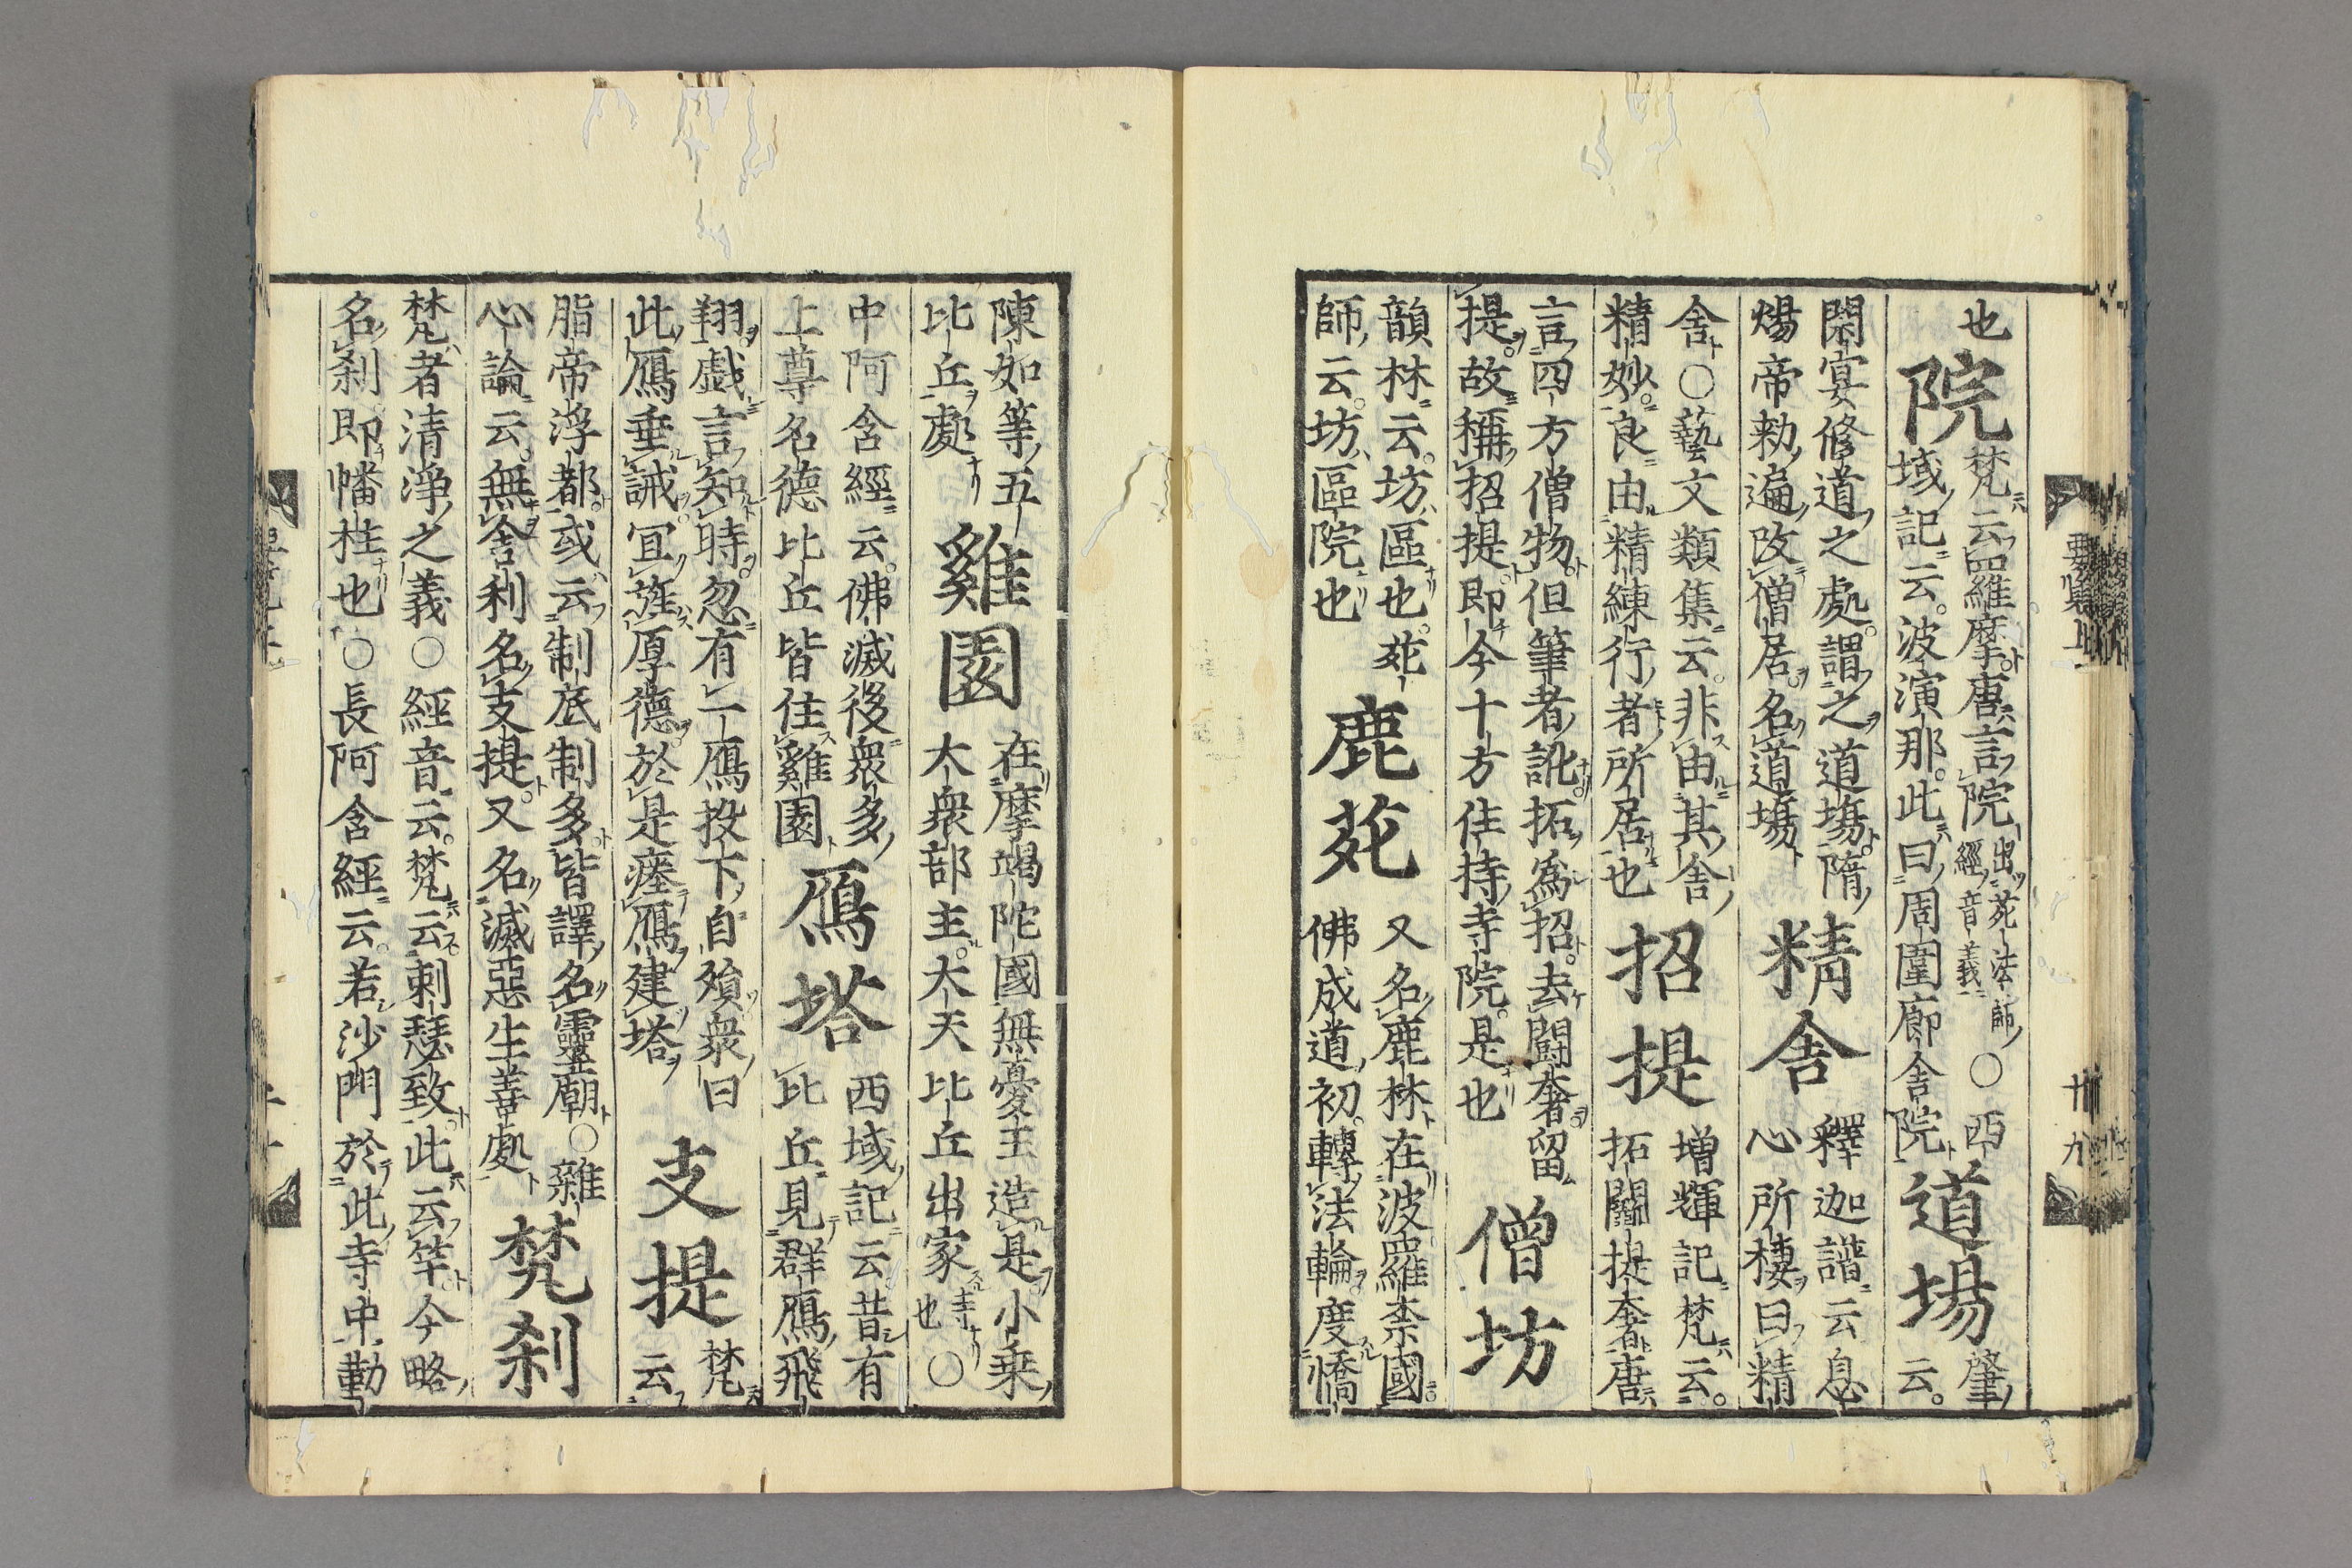 也院梵云羅摩唐言院出苑法師經音義○西
域記云波演那此曰周圍廊舍院道場肇云
閑宴修道之處謂之道場隋
煬帝勅遍改僧居名道場精舍釋迦譜云息心所棲曰精
舍○藝文類集云非由其舍
精妙良由精練行者所居也招提增輝記梵云拓鬪提奢唐
言四方僧物但筆者訛拓為招去鬪奢留
提故稱招提即今十方住持寺院是也僧坊
韻林云坊區也苑
師云坊區院也鹿苑又名鹿林在波羅柰國佛成道初轉法輪度憍
陳如等五
比丘處雞園在摩竭陀國無憂王造是小乗大衆部主大天比丘出家寺也○
中阿含經云佛滅後衆多
上尊名德比丘皆住雞園鴈塔西域記云昔有比丘見群鴈飛
翔戯言知時忽有一鴈投下自殞衆曰
此鴈垂誡冝旌厚德於是瘞鴈建塔支提梵云
脂帝浮都或云制底制多皆譯名靈廟○雜
心論云無舍利名支提又名滅惡生善處梵刹
梵者清淨之義○經音云梵云剌瑟致此云竿今略
名刹即幡柱也○長阿含經云若沙門於此寺中勤
要覧上
廿九